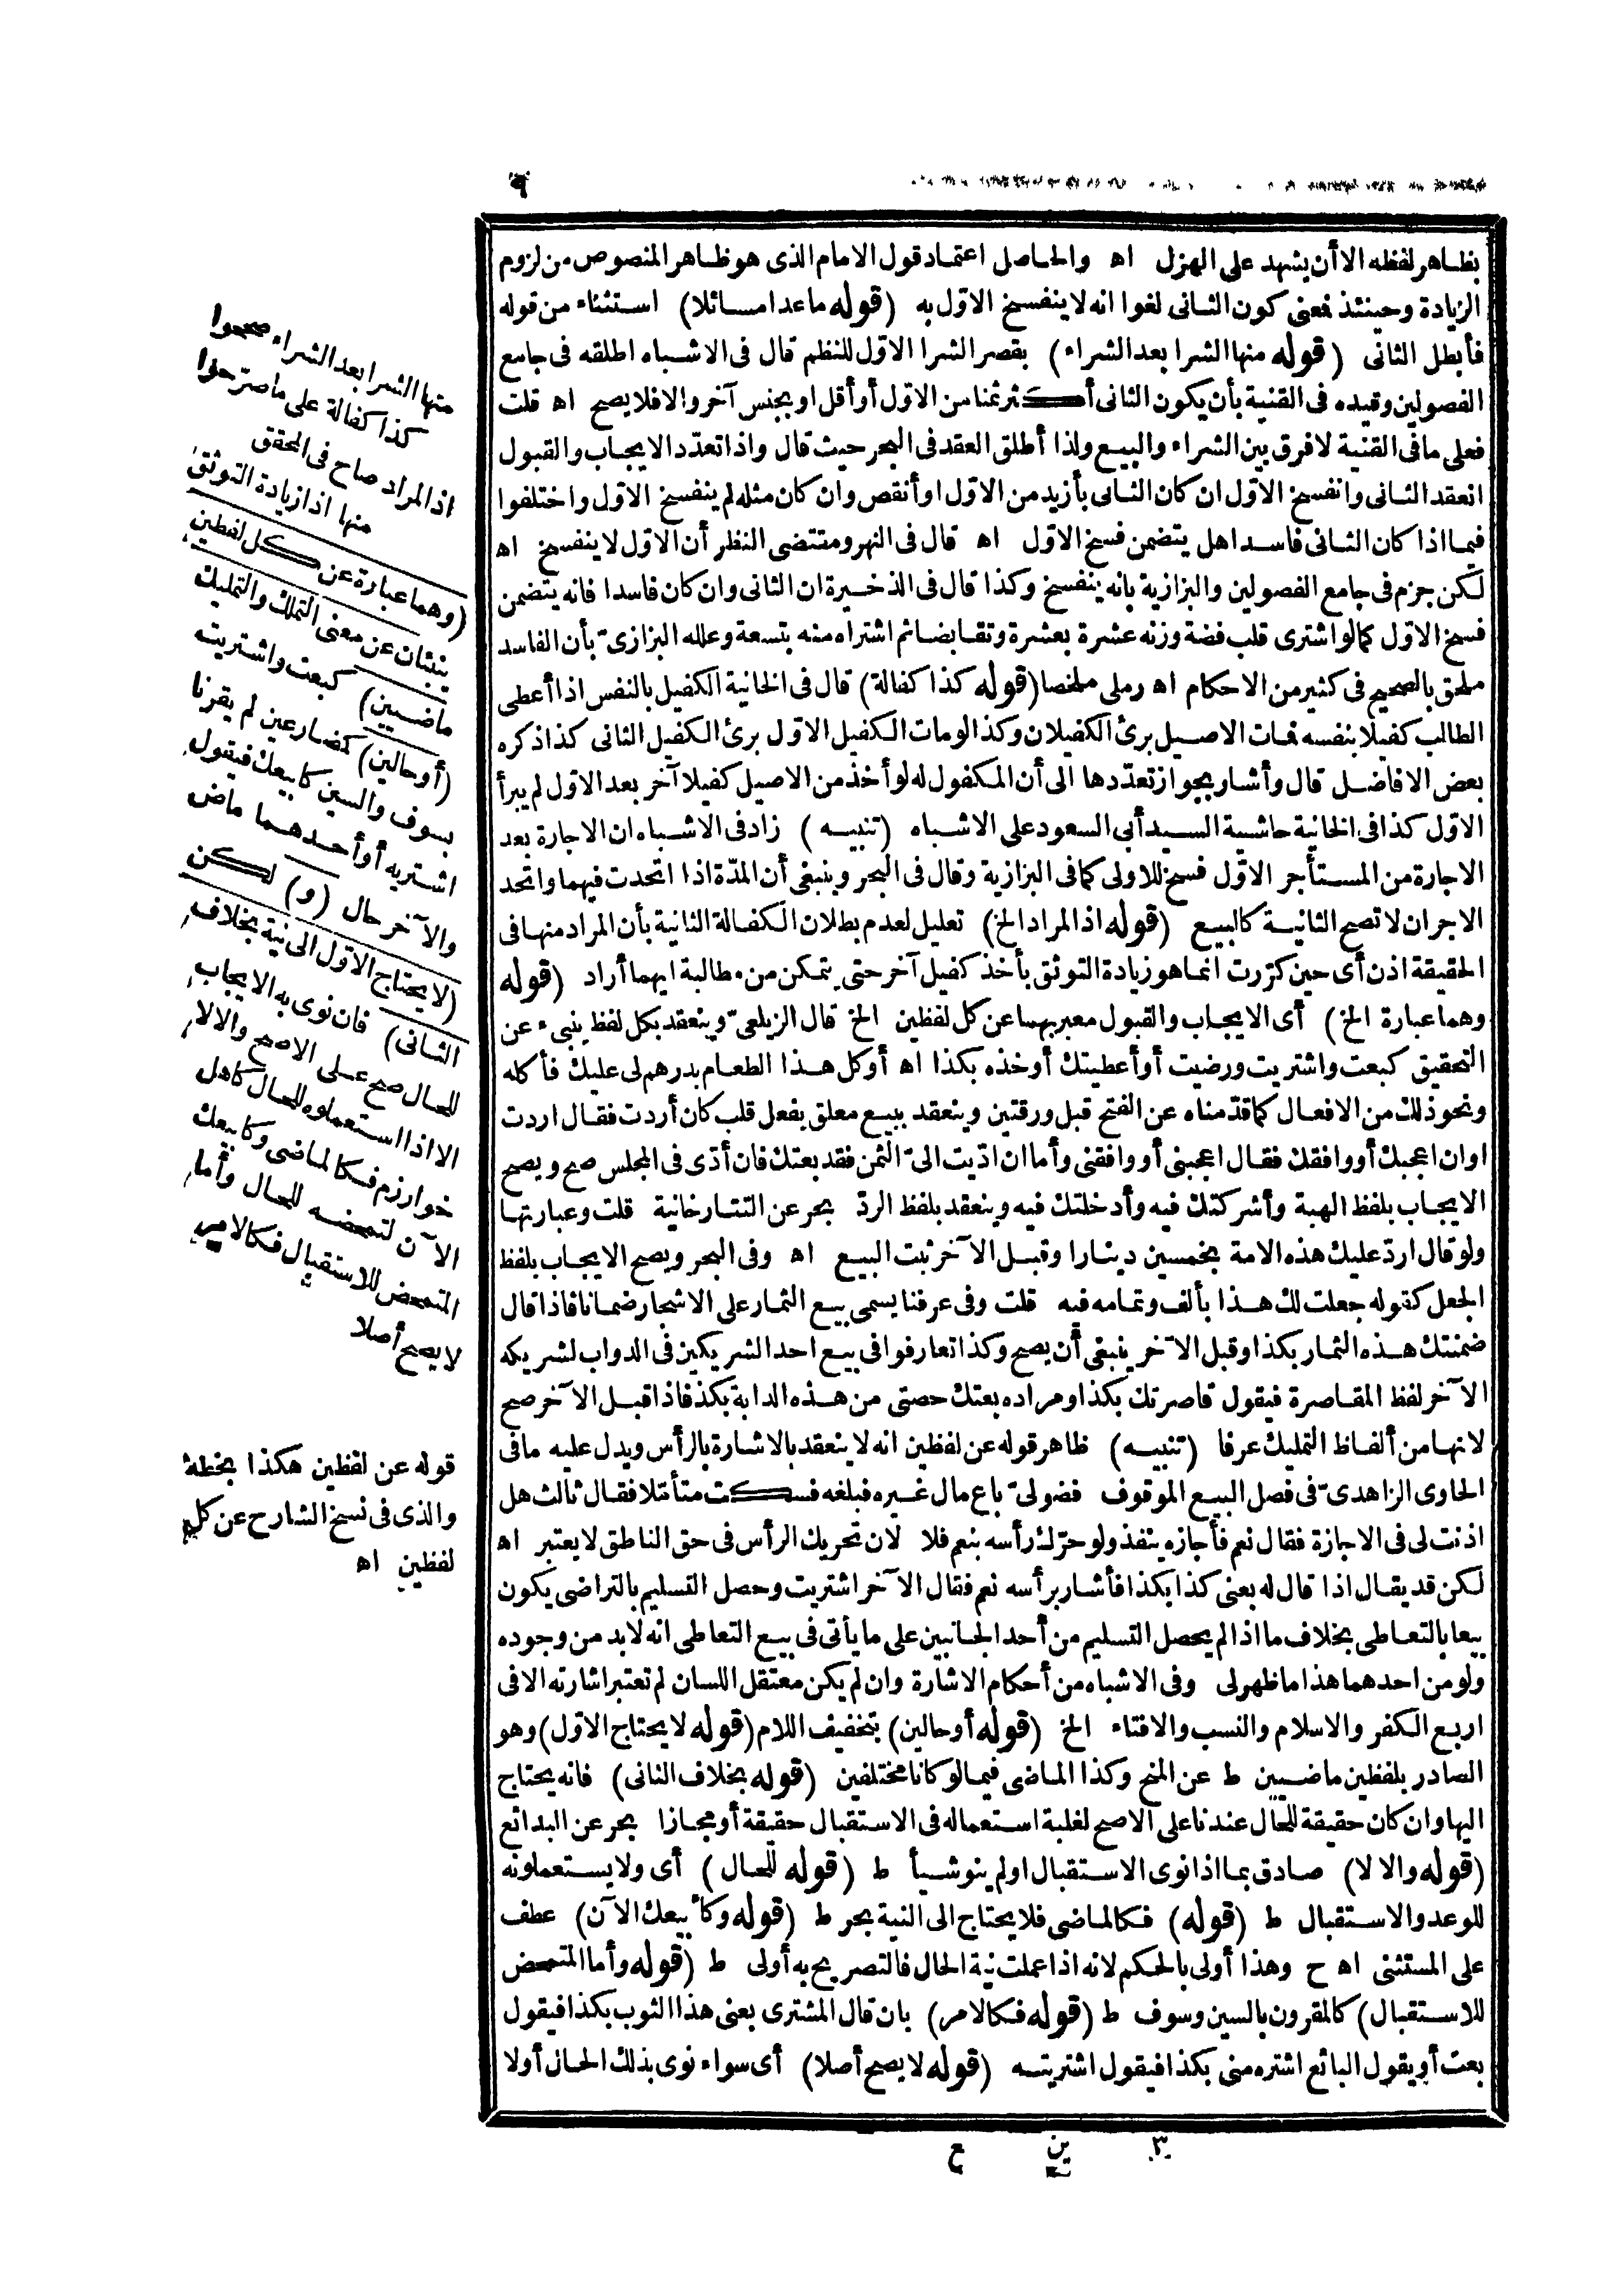 ٩
بظاهر لفظه الا أن يشهد على الهزل اه والحاصل اعتماد قول الامام الذى هو ظاهر المنصوص من لزوم
الزيادة وحينئذ فعنى كون الثانى لغوا انه لا ينفسخ الاوّل به (قوله ما عدا مسائلا) استثناء من قوله
فأبطل الثانى (قوله منها الشرا بعد الشراء) بقصر الشرا الاوّل للنظم قال فى الاشباه اطلقه فى جامع
الفصولين وقيده فى القنية بأن يكون الثانى أكثر ثمنا من الاوّل أو أقل او بجنس آخر والا فلا يصح اه قلت
فعلى ما فى القنية لا فرق بين الشراء والبيع ولذا أطلق العقد فى البحر حيث قال واذا تعدّد الايجاب والقبول
انعقد الثانى وانفسخ الاوّل ان كان الثانى بأزيد من الاوّل او أنقص وان كان مثله لم ينفسخ الاوّل واختلفوا
فيما اذا كان الثانى فاسدا هل يتضمن فسخ الاوّل اه قال فى النهر ومقتضى النظر أن الاوّل لا ينفسخ اه
لكن جزم فى جامع الفصولين والبزازية بانه ينفسخ وكذا قال فى الذخيرة ان الثانى وان كان فاسدا فانه يتضمن
فسخ الاوّل كما لو اشترى قلب فضة وزنه عشرة بعشرة وتقابضا ثم اشتراه منه بتسعة وعلله البزازىّ بأن الفاسد
ملحق بالصحيح فى كثير من الاحكام اه رملى ملخصا (قوله كذا كفالة) قال فى الخانية الكفيل بالنفس اذا أعطى
الطالب كفيلا بنفسه فمات الاصيل برئ الكفيلان وكذا لو مات الكفيل الاوّل برئ الكفيل الثانى كذا ذكره
بعض الافاضل قال وأشار بجواز تعدّدها الى أن المكفول له لو أخذ من الاصيل كفيلا آخر بعد الاوّل لم يبرأ
الاوّل كذا فى الخانية حاشية السيد أبى السعود على الاشباه (تنبيه) زاد فى الاشباه ان الاجارة بعد
الاجارة من المستأجر الاوّل فسخ للاولى كما فى البزازية وقال فى البحر وينبغى أن المدّة اذا اتحدت فيهما واتحد
الاجران لا تصح الثانية كالبيع (قوله اذ المراد الخ) تعليل لعدم بطلان الكفالة الثانية بأن المراد منها فى
الحقيقة اذن أى حين كرّرت انما هو زيادة التوثق بأخذ كفيل آخر حتى يتمكن من مطالبة ايهما أراد (قوله
وهما عبارة الخ) أى الايجاب والقبول معبر بهما عن كل لفظين الخ قال الزيلعىّ وينعقد بكل لفظ ينبىء عن
التحقيق كبعت واشتريت ورضيت أو أعطيتك أو خذه بكذا اه أو كل هذا الطعام بدرهم لى عليك فأكله
ونحو ذلك من الافعال كما قدّمناه عن الفتح قبل ورقتين وينعقد ببيع معلق بفعل قلب كان أردت فقال اردت
اوان اعجبك أو وافقك فقال اعجبنى أو وافقنى وأما ان ادّيت الىّ الثمن فقد بعتك فان أدّى فى المجلس صح ويصح
الايجاب بلفظ الهبة وأشركتك فيه وأدخلتك فيه وينعقد بلفظ الردّ بحر عن التتارخانية قلت وعبارتها
ولو قال اردّ عليك هذه الامة بخمسين دينارا وقبل الآخر ثبت البيع اه وفى البحر ويصح الايجاب بلفظ
الجعل كقوله جعلت لك هذا بألف وتمامه فيه قلت وفى عرفنا يسمى بيع الثمار على الاشجار ضمانا فاذا قال
ضمنتك هذه الثمار بكذا وقبل الآخر ينبغى أن يصح وكذا تعارفوا فى بيع احد الشريكين فى الدواب لشريكه
الآخر لفظ المقاصرة فيقول قاصرتك بكذا ومراده بعتك حصتى من هذه الدابة بكذا فاذا قبل الآخر صح
لانها من ألفاظ التمليك عرفا (تنبيه) ظاهر قوله عن لفظين انه لا ينعقد بالاشارة بالرأس ويدل عليه ما فى
الحاوى الزاهدىّ فى فصل البيع الموقوف فضولىّ باع مال غيره فبلغه فسكت متأمّلا فقال ثالث هل
اذنت لى فى الاجازة فقال نعم فأجازه ينفذ ولو حرّك رأسه بنعم فلا لان تحريك الرأس فى حق الناطق لا يعتبر اه
لكن قد يقال اذا قال له بعنى كذا بكذا فأشار برأسه نعم فقال الآخر اشتريت وحصل التسليم بالتراضى يكون
بيعا بالتعاطى بخلاف ما اذا لم يحصل التسليم من أحد الجانبين على ما يأتى فى بيع التعاطى انه لا بد من وجوده
ولو من احدهما هذا ما ظهر لى وفى الاشباه من أحكام الاشارة وان لم يكن معتقل اللسان لم تعتبر اشارته الا فى
اربع الكفر والاسلام والنسب والافتاء الخ (قوله أو حالين) بتخفيف اللام (قوله لا يحتاج الاوّل) وهو
الصادر بلفظين ماضيين ط عن المنح وكذا الماضى فيما لو كانا مختلفين (قوله بخلاف الثانى) فانه يحتاج
اليها وان كان حقيقة للحال عندنا على الاصح لغلبة استعماله فى الاستقبال حقيقة أو مجازا بحر عن البدائع
(قوله والا لا) صادق بما اذا نوى الاستقبال او لم ينو شيأ ط (قوله للحال) أى ولا يستعملونه
للوعد والاستقبال ط (قوله) فكالماضى فلا يحتاج الى النية بحر ط (قوله وكأبيعك الآن) عطف
على المستثنى اه ح وهذا أولى بالحكم لانه اذا عملت نية الحال فالتصريح به أولى ط (قوله وأما المتمحض
للاستقبال) كالمقرون بالسين وسوف ط (قوله فكالامر) بان قال المشترى بعنى هذا الثوب بكذا فيقول
بعت أو يقول البائع اشتره منى بكذا فيقول اشتريته (قوله لا يصح أصلا) أى سواء نوى بذلك الحال أولا
منها الشرا بعد الشراء صححوا
كذا كفالة على ما صرّحوا
اذ المراد صاح فى المحقق
منها اذا زيادة التوثق
(وهما عبارة عن كل لفظين
ينبئان عن معنى التملك والتمليك
ماضيين) كبعت واشتريت
(أو حالين) كمضارعين لم يقرنا
بسوف والسين كابيعك فيقول
اشتريه أو أحدهما ماض
والآخر حال (و) لكن
(لا يحتاج الاوّل الى نية بخلاف
الثانى) فان نوى به الايجاب
للحال صح على الاصح والا لا
الا اذا استعملوه للحال كاهل
خوارزم فكالماضى وكابيعك
الآن لتمحضه للحال وأما
المتمحض للاستقبال فكالامر
لا يصح أصلا
قوله عن لفظين هكذا بخطه
والذى فى نسخ الشارح عن كل
لفظين اه
٣ ين ع